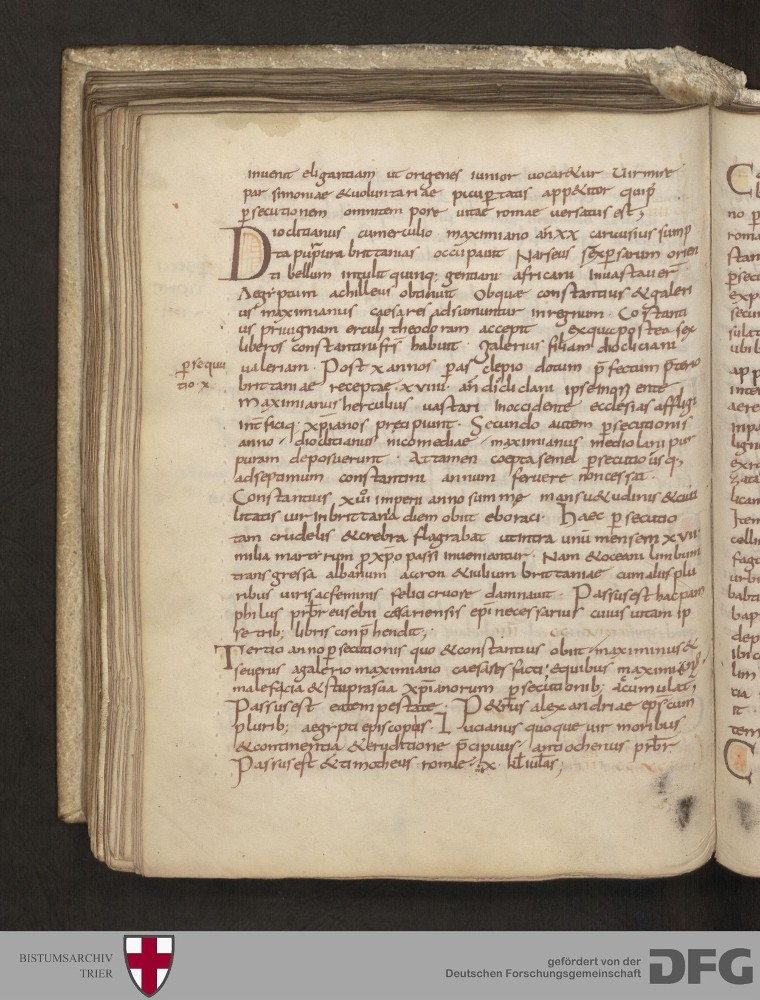 inuenit eligantiam ut origenes iunior uocar&ur Uirmire
par simoniae &uoluntariae pauptatis app&itor quip
psecutionem omnitem pore uitae romae uersatus est;
Dioclitianus cumerculio maximiano añ xx carausius sump
ta purpura brittanias occupauit Narseus rex persarum orien
ti bellum intulit quinq; gentiani africam inuastauer
Aegyptum achilleus obtinuit Obquae constantius &galeri
us maximianus caesares adsumuntur inregnum Constanti
us priuignam erculi theodoram accepit exquapostea sex
liberos constantini frs habuit Galerius filiam diocliciani
ualeriam Post x annos pas clepio dotum pfectum ptorio
psequu
tio x
brittaniae receptae xviiii añ dicliciani ipseinori ente
Maximianus herculius uastari Inoccidente ecclesias affligi
intficiq; xpianos precipiunt Secundo autem psecutionis
anno dioclitianus nicomediae maximianus mediolani pur
puram deposuerunt Attamen coeptasemel psecutio usq;
adseptimum constantini annum feruere noncessat
Constantius xvi imperii anno summe mansu&udinis &ciui
litatis uir inbrittania diem obiit eboraci Haec psecutio
tam crudelis &crebra flagrabat utintra unũ mensem xvii
milia martyrum pxpo passi inueniantur Nam &oceani limbum
transgressa albanum aaron &iulium brittaniae cumaliis plu
ribus uirisacfeminis felici cruore damnauit Passusest hac pam
philus prbr eusebii caesariensis epi necessarius cuius uitam ip
setrib; libris conphendit;
Tertio anno psecutionis quo &constantius obiit maximinus &
seuerus agalerio maximiano caesares facti equibus maximinus
maleficia &stuprasua xpianorum psecutionib; accumulat;
Passusest eatempestate P&rus alexandriae eps cum
plurib; aegypti episcopis Lucianus quoque uir moribus
&continentia &eruditione pcipuus antiochenus prbr
Passus est &timotheus romae x kl iulias;
BISTUMSARCHIV
TRIER
gefördert von der
Deutschen Forschungsgemeinschaft
DFG